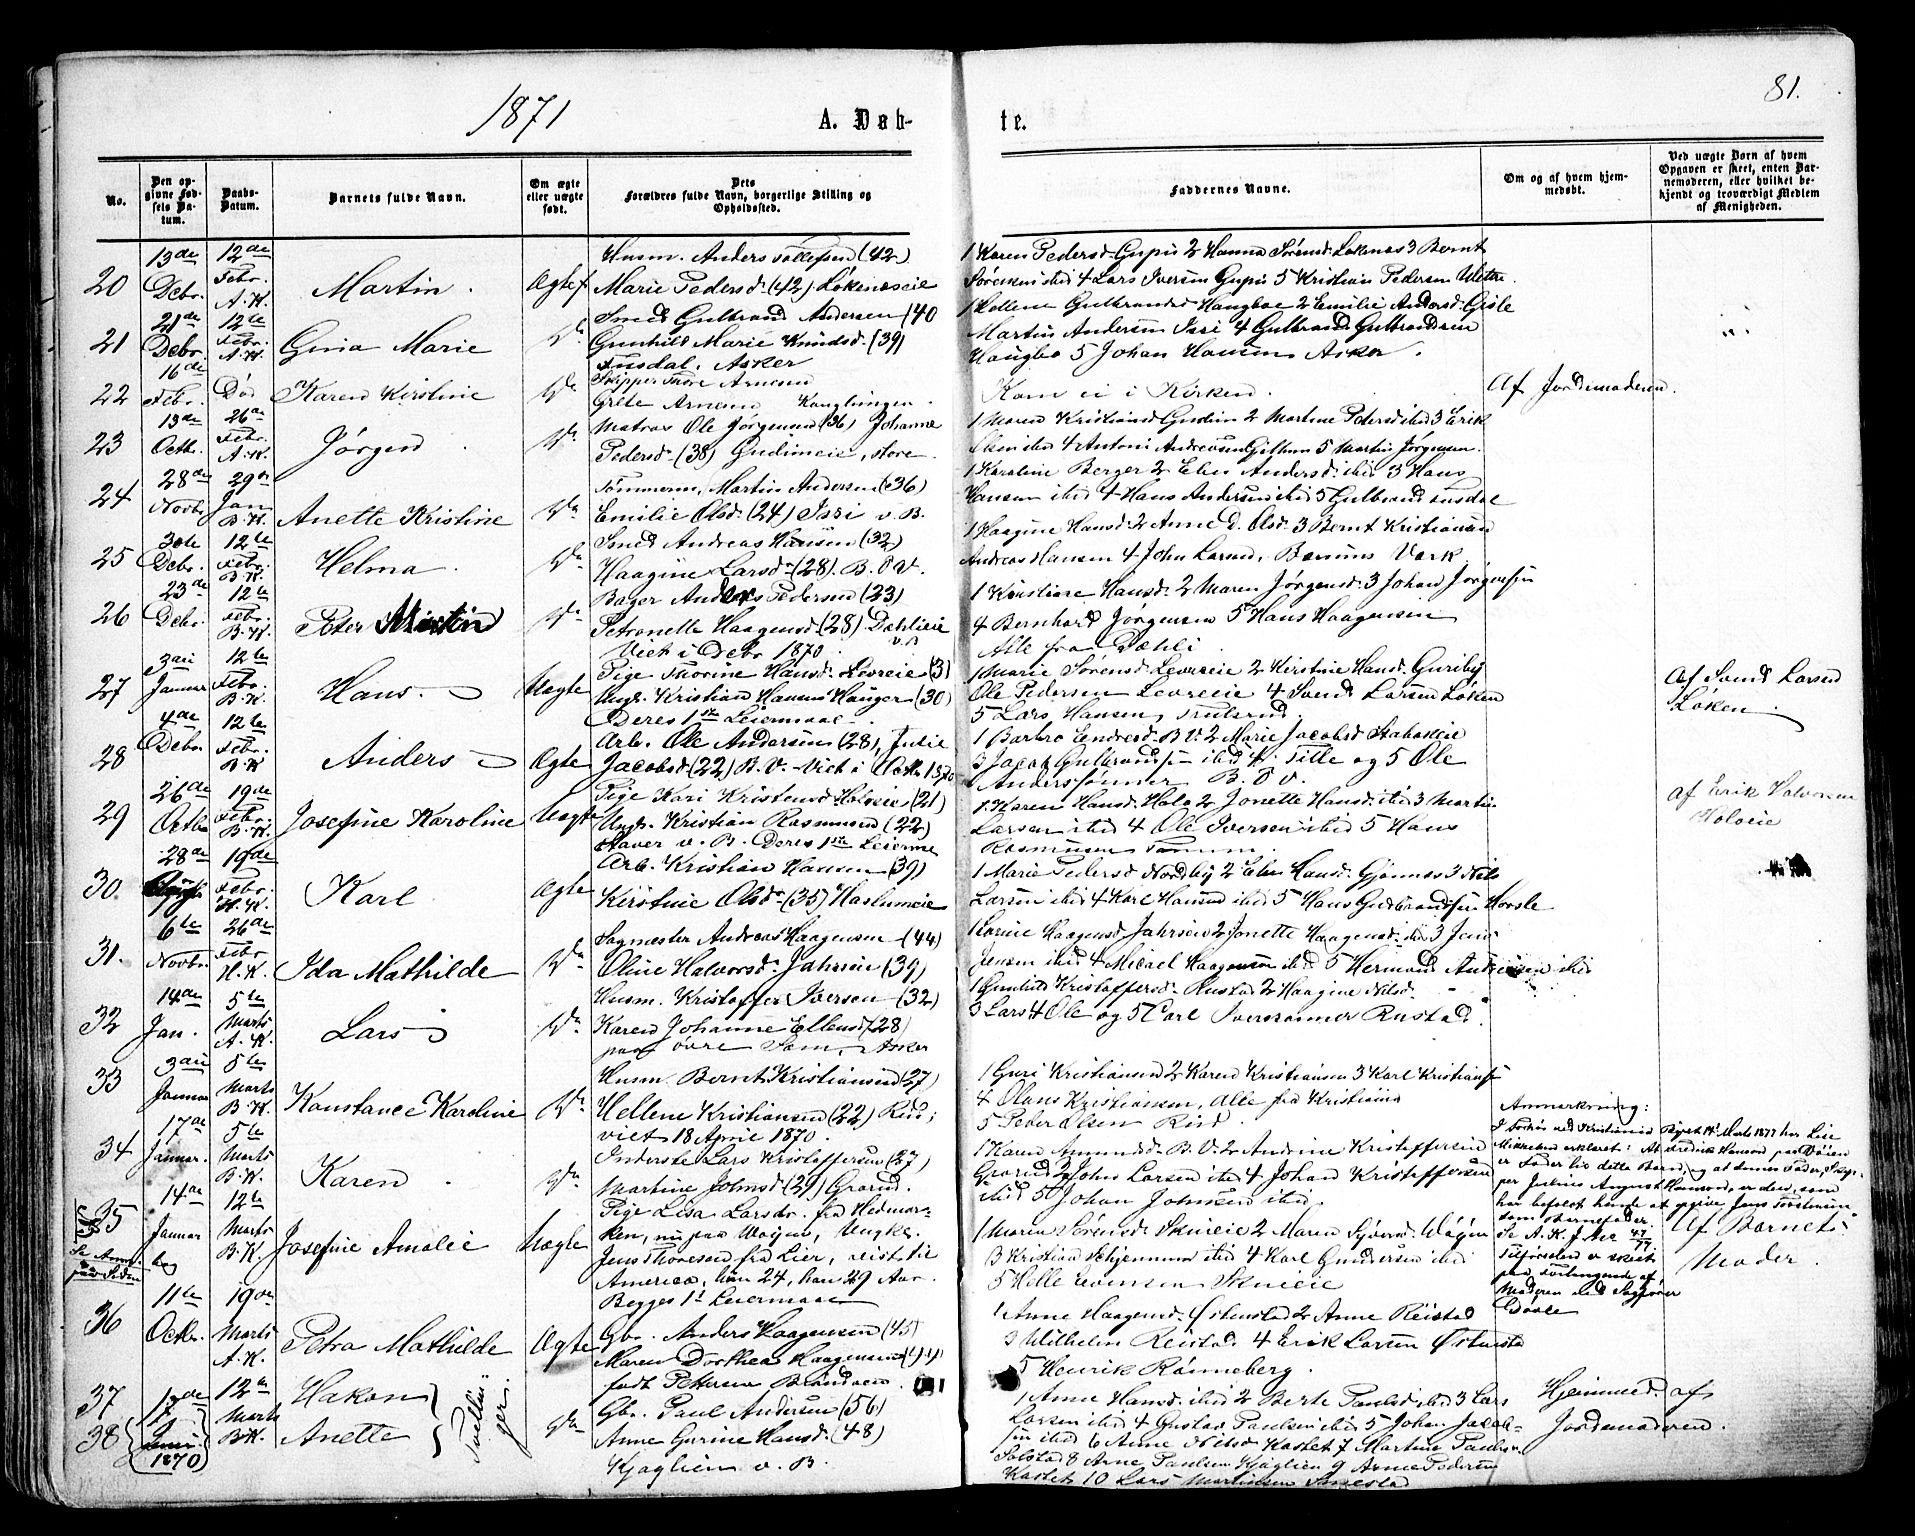 1871
A. Døb-
te.
81.
No.
Den op-
givne Fød-
sels Da-
tum.
Daabs-
Datum.
Barnets fulde Navn.
Om ægte
eller uægte
født.
Dets
Forældres fulde Navn, borgerlige Stilling og
Opholdssted.
Faddernes Navne.
Om og af hvem hjem-
medøbt.
Ved uægte Born af hvem
Opgaven er skeet, enten Bar-
nemoderen, eller hvilket be-
kjendt og troværdigt Medlem
af Menigheden.
20
13de
Debr.
12de
Febr.
A.K.
Martin
Ægtef
Husm. Anders Tollefsen (42)
Marie Pedersd. (42) Løkeneseie
1 Karen Pedersd. Gupu 2 Hanna Sørensd. Løkenes 3 Bernt
Sørensen ibid 4 Lars Iversen Gupu 5 Kristian Pedersen
21
21de
Debr.
12te
Febr.
A.K.
Gina Marie
Do
Smed Gulbrand Andersen (40
Gunhild Marie Knudsd. (39)
Fusdal, Asker
1 Hellene Gulbrandsd Haugboe 2 Emilie Andersd. Gisle
Martin Andersen Issi 4 Gulbrand Gulbrandsen
Haugbo 5 Johan Hansen Asker.
22
16de
Febr.
Død
Karen Kirstine
Do
Skipper Thore Arnesen
Grete Arnesen
Kom ei i Kirken.
Af Jordemoderen.
23
13de
Octbr.
26de
Febr.
A.K.
Jørgen
Do
Matros Ole Jørgensen (36) Johanne
Pedersd. (38) Gudimeie, store
1 Maren Kristiansd Gudim 2 Martine Petersd ibid 3 Erik
Olsen ibid 4 Antoni Andreasen Gjellum 5 Martin Jørgensen.
24
28de
Novbr.
29de
Jan
B.K.
Anette Kristine
Do
Tømmerm. Martin Andersen (36)
Emilie Olsd. (24) Issi v. B.
1 Karoline Berger 2 Elen Andersd. ibid 3 Hans
Hansen ibid 4 Hans Andersen ibid 5 Gulbrand Fusdal
25
30te
Debr.
12te
Febr.
B.K.
Helma
Do
Smed Andreas Hansen (32)
Haagine Larsd. (28). B. V.
1 Haagine Hansd. 2 Anne D. Olsd. 3 Bernt Kristiansen
Andreas Hansen 4 John Larsen, Bærums Værk
26
23de
Debr.
12te
Febr.
B.K.
Peter Martin
Do
Bager Anders Pedersen (23)
Petronelle Haagensd. (28) Dæhlieie
Viet i Debr 1870.
1 Kirstiane Hansd. 2 Maren Jørgensd. 3 Johan Jørgensen
4 Bernhard Jørgensen 5 Hans Haagensen
Alle fra Dæhli
27
3die
Januar
12te
Febr.
B.K.
Hans
Uægte
Pige Thorine Hansd. Levreeie (31
Ungk. Kristian Hansen Hauger (30)
Deres 1ste Leiermaal.
1 Marie Sørensd. Levreeie 2 Kirstine Hansd. Guriby
Ole Pedersen Levreeie 4 Svend Larsen Løken
5 Lars Hansen
Af Svend Larsen
Løken
28
4de
Debr
12te
Febr.
B.K
Anders
Ægte
Arb. Ole Andersen (28), Julie
Jacobsd. (22) B. V. Viet i Octbr 1870
1 Barbro Endresd. B. V. 2 Marie Jacobsd Stabækeie
3 Jacob Gulbrandsen ibid 4. Tille og 5 Ole
Anderssønner B. V.
29
26de
Octbr
19de
Febr.
B.K.
Josefine Karoline
Uægte
Pige Kari Kristensd Holoeie (21)
Ungk. Kristian Rasmussen (22)
Staver v. B. Deres 1ste Leierm
1. Karen Hansd. Holo 2 Jonette Hansd. ibid 3 Martin
Larsen ibid 4 Ole Iversen ibid 5 Hans
Rasmussen
af Erik Halvorsen
Holoeie
30.
28de
19de
Febr.
H.K.
Karl
Ægte
Arb. Kristian Hansen (39)
Kirstine Olsd. (35) Haslumeie
1 Marie Pedersd Nordby 2 Elen Hansd. Gjønnes 3 Nils
Larsen ibid 4 Karl Hansen ibid 5 Hans Gulbrandsen Horsle
31.
6te
Novbr.
26de
Febr
H.K.
Ida Mathilde
Do
Sagmester Andreas Haagensen (44)
Oline Halvorsd. Jahreie (39)
1 Karine Haagensd Jahreie 2 Jonette Haagensd. ibid 3 Jens
Jensen ibid 4 Micael Haagensen ibid 5 Hermand Andersen ibid
32
14de
Jan.
5te
Marts
A.K.
Lars
Do
Husm. Kristoffer Iversen (32)
Karen Johanne Ellensd (28)
paa øvre Sem, Asker
1 Gunhild Kristoffersd. Rustad 2 Haagine Nilsd.
3 Lars 4 Ole og 5 Carl Iverssønner Rustad.
33
3die
Januar
5te
Marts
B.K.
Konstance Karoline
Do
Husm. Bernt Kristiansen (27)
Hellene Kristiansen (22) Rud;
viet 18 April 1870.
1 Guri Kristiansen 2 Karen Kristiansen 3 Karl Kristiansen
4 Olaus Kristiansen, alle fra Kristiania
5 Peder Olsen Rud.
34
17de
Januar.
5te
Marts
B.K.
Karen
Do
Inderste Lars Kristoffersen (27)
Martine Johnsd. (29) Grorud.
1 Karen Amundsd. B. V. 2 Andrine Kristoffersen
Grorud 3 John Larsen ibid 4 Johan Kristoffersen
ibid 5 Johan Johnsen ibid
35
Se Anm.
paa Siden
14de
Januar
12te
Marts
B.K.
Josefine Amalie
Uægte
Pige Lisa Larsdr. fra Hedmar-
ken, nu paa Wøyen, Ungk.
Jens Thoresen fra Lier, reist til
America, hun 24, han 29 Aar.
Begges 1ste Leiermaal
1 Maren Sørensd. Skuieie 2 Maren Syversd. Wøyen
3 Kristian Schjennum ibid 4 Karl Gundersen ibid
5 Helle Evensen Skuieie
Anmerkning:
I Forhør ved Kristiania Byret 14de Marts 1877 har Lise
Mikkelsen erklæret: At Fredrik Hansen paa Bøien
er Fader til dette Barn, og at dennes Fader, Skip-
per Julius August Hansen, er den, som
har befalet hende at opgive Jens Torstensen
som Barnefader.
Se A. K. J. No 47/77
Tilførselen er skeet
paa Forlangende af
Moderen ved Sagfører
Af Barnets
Moder.
36
11te
Octbr.
19de
Marts
A.K.
Petra Mathilde
Ægte
Gbr. Anders Haagensen (45)
Maren Dorthea Haagensen (44
født Pettersen
1 Anne Haagensd. Østenstad 2 Anne Reistad
3 Wilhelm Reistad 4 Erik Larsen Østenstad
5 Henrik Rønneberg.
37
38
17de
1870
12te
Marts
B.K.
Hakon
Anette
Tvillin
ger.
Do
Gbr. Paul Andersen (56)
Anne Gurine Hansd. (48)
Kjaglien v. B.
1 Anne Hansd. ibid 2 Berte Paulsd ibid 3 Lars
Larsen ibid 4 Gustav Paulsen ibid 5 Johan Jacob-
sen ibid 6 Anne Nilsd Kastet 7 Martin Paulsen
Solstad 8 Arne Paulsen Kjaglien 9 Arne Pedersen
Kastet 10 Lars Martinsen
Hjemmed. af
Jordemoderen.